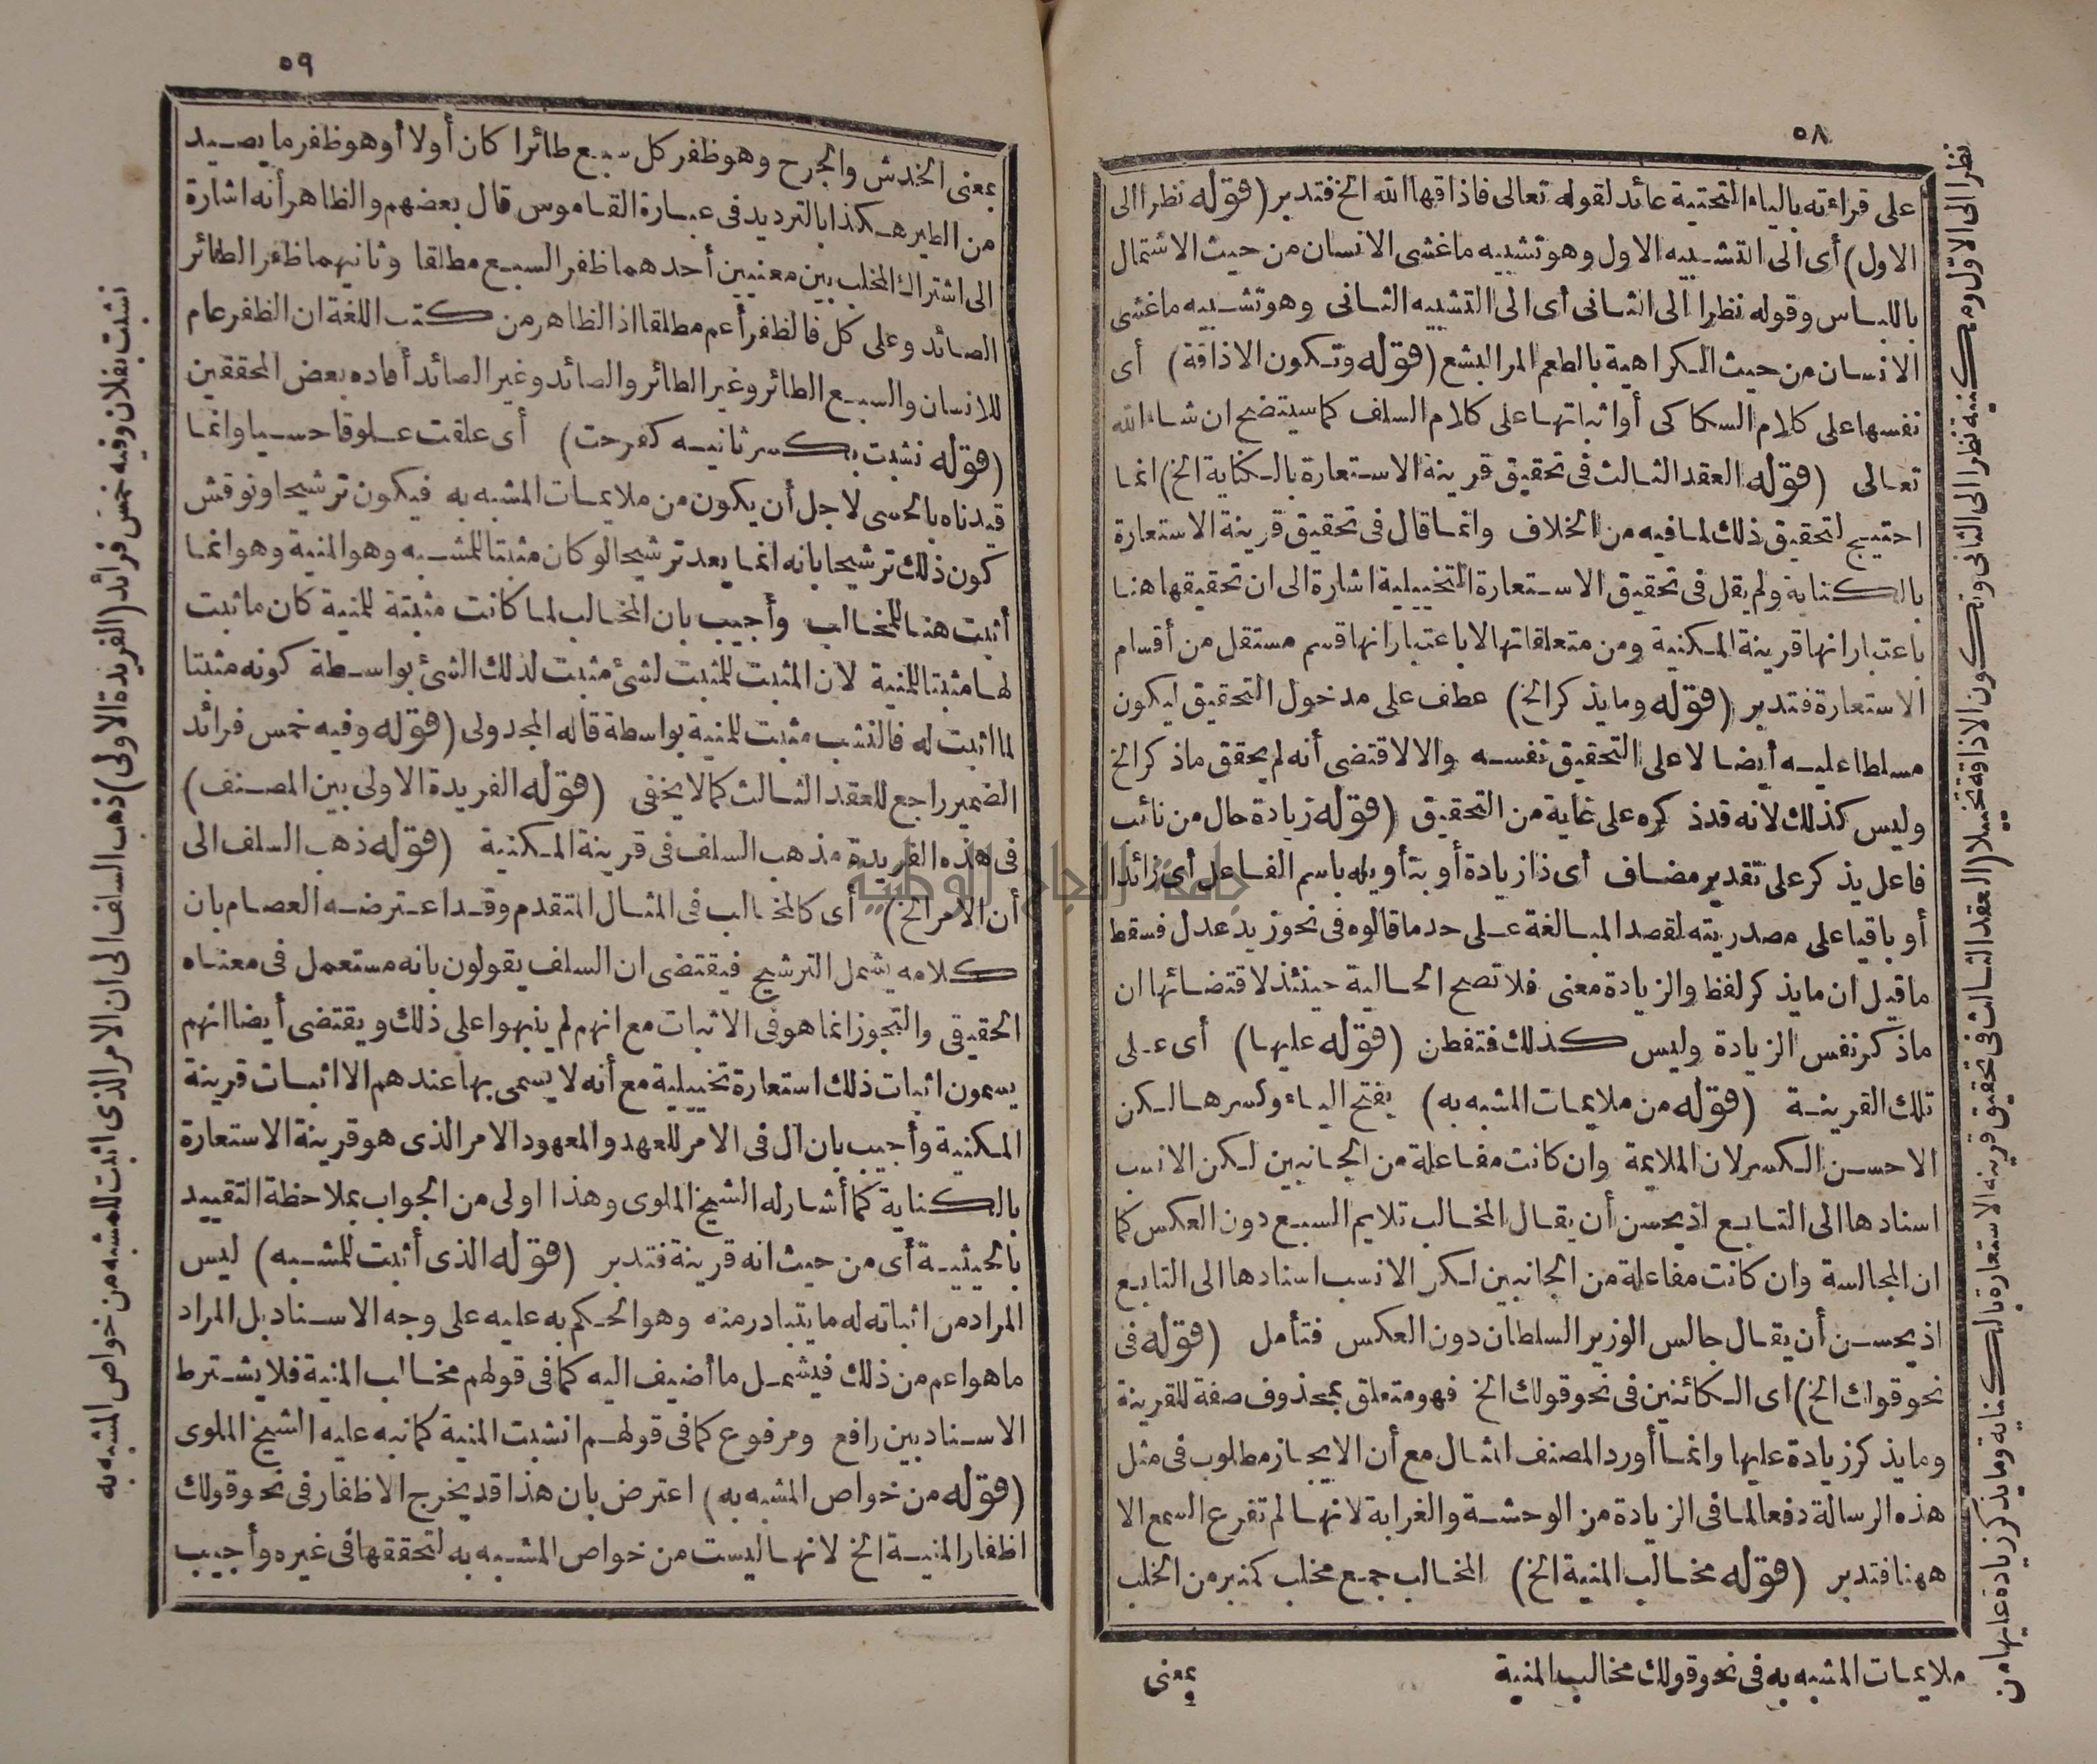 ٥٨
على قراءته بالياء التحتية عائد لقوله تعالى فاذاقها الله الخ فتدبر (قوله نظرا الى
الاول) أى الى التشبيه الاول وهو تشبيه ما غشى الانسان من حيث الاشتمال
باللباس وقوله نظرا الى الثانى أى الى التشبيه الثانى وهو تشبيه ما غشى
الانسان من حيث الكراهية بالطعم المر البشع (قوله وتكون الاذاقة) أى
نفسها على كلام السكاكى أو اثباتها على كلام السلف كما سيتضح ان شاء الله
تعالى (قوله العقد الثالث فى تحقيق قرينة الاستعارة بالكناية الخ) انما
احتيج لتحقيق ذلك لما فيه من الخلاف وانما قال فى تحقيق قرينة الاستعارة
بالكناية ولم يقل فى تحقيق الاستعارة التخييلية اشارة الى ان تحقيقها هنا
باعتبار انها قرينة المكنية ومن متعلقاتها لا باعتبار انها قسم مستقل من أقسام
الاستعارة فتدبر (قوله وما يذكر الخ) عطف على مدخول التحقيق ليكون
مسلطا عليه أيضا لا على التحقيق نفسه والا لاقتضى أنه لم يحقق ما ذكر الخ
وليس كذلك لانه قد ذكره على غاية من التحقيق (قوله زيادة حال من نائب
فاعل يذكر على تقدير مضاف أى ذا زيادة أو بتأويله باسم الفاعل أى زائدا
أو باقيا على مصدريته لقصد المبالغة على حد ما قالوه فى نحو زيد عدل فسقط
ما قيل ان ما يذكر لفظ والزيادة معنى فلا تصح الحالية حينئذ لاقتضائها ان
ما ذكر نفس الزيادة وليس كذلك فتفطن (قوله عليها) أى على
تلك القرينة (قوله من ملايمات المشبه به) يفتح الياء وكسرها لكن
الاحسن الكسر لان الملايمة وان كانت مفاعلة من الجانبين لكن الانسب
اسنادها الى التابع اذ يحسن أن يقال المخالب تلايم السبع دون العكس كما
ان المجالسة وان كانت مفاعلة من الجانبين لكن الانسب اسنادها الى التابع
اذ يحسن أن يقال جالس الوزير السلطان دون العكس فتأمل (قوله فى
نحو قولك الخ) اى الكائنين فى نحو قولك الخ فهو متعلق بمحذوف صفة للقرينة
وما يذكر زيادة عليها وانما أورد المصنف المثال مع أن الايجاز مطلوب فى مثل
هذه الرسالة دفعا لما فى الزيادة من الوحشة والغرابة لانها لم تقرع السمع الا
ههنا فتدبر (قوله مخالب المنية الخ) المخالب جمع مخلب كمنبر من الخلب
بمعنى
نظرا الى الاول ومكنية نظرا الى الثانى وتكون الاذاقة تخييلا (العقد الثالث فى تحقيق قرينة الاستعارة بالكناية وما يذكر زيادة عليها من
ملايمات المشبه به فى نحو قولك مخالب المنية
٥٩
بمعنى الخدش والجرح وهو ظفر كل سبع طائرا كان أو لا أو هو ظفر ما يصيد
من الطير هكذا بالترديد فى عبارة القاموس قال بعضهم والظاهر أنه اشارة
الى اشتراك المخلب بين معنيين أحدهما ظفر السبع مطلقا وثانيهما ظفر الطائر
الصائد وعلى كل فالظفر أعم مطلقا اذ الظاهر من كتب اللغة ان الظفر عام
للانسان والسبع الطائر وغير الطائر والصائد وغير الصائد أفاده بعض المحققين
(قوله نشبت بكسر ثانيه كفرحت) أى علقت علوقا حسيا وانما
قيدناه بالحسى لاجل أن يكون من ملايمات المشبه به فيكون ترشيحا ونوقش
كون ذلك ترشيحا بانه انما يعد ترشيحا لو كان مثبتا للمشبه وهو المنية وهو انما
أثبت هنا للمخالب وأجيب بان المخالب لما كانت مثبتة للمنية كان ما ثبت
لها مثبتا للمنية لان المثبت للمثبت لشئ مثبت لذلك الشئ بواسطة كونه مثبتا
لما اثبت له فالنشب مثبت للمنية بواسطة قاله المجدولى (قوله وفيه خمس فرائد
الضمير راجع للعقد الثالث كما لا يخفى (قوله الفريدة الاولى بين المصنف)
فى هذه الفريدة مذهب السلف فى قرينة المكنية (قوله ذهب السلف الى
أن الامر الخ) أى كالمخالب فى المثال المتقدم وقد اعترضه العصام بان
كلامه يشمل الترشيح فيقتضى ان السلف يقولون بانه مستعمل فى معناه
الحقيقى والتجوز انما هو فى الاثبات مع انهم لم ينبهوا على ذلك ويقتضى أيضا انهم
يسمون اثبات ذلك استعارة تخييلية مع أنه لا يسمى بها عندهم الا اثبات قرينة
المكنية وأجيب بان ال فى الامر للعهد والمعهود الامر الذى هو قرينة الاستعارة
بالكناية كما أشار له الشيخ الملوى وهذا اولى من الجواب بملاحظة التقييد
بالحيثية أى من حيث انه قرينة فتدبر (قوله الذى أثبت للمشبه) ليس
المراد من اثباته له ما يتبادر منه وهو الحكم به عليه على وجه الاسناد بل المراد
ما هو اعم من ذلك فيشمل ما أضيف اليه كما فى قولهم مخالب المنية فلا يشترط
الاسناد بين رافع ومرفوع كما فى قولهم انشبت المنية كما نبه عليه الشيخ الملوى
(قوله من خواص المشبه به) اعترض بان هذا قد يخرج الاظفار فى نحو قولك
اظفار المنية الخ لانها ليست من خواص المشبه به لتحققها فى غيره وأجيب
نشبت بفلان وفيه خمس فرائد (الفريدة الاولى) ذهب السلف الى ان الامر الذى اثبت للمشبه من خواص المشبه به
جامعة النجاح الوطنية